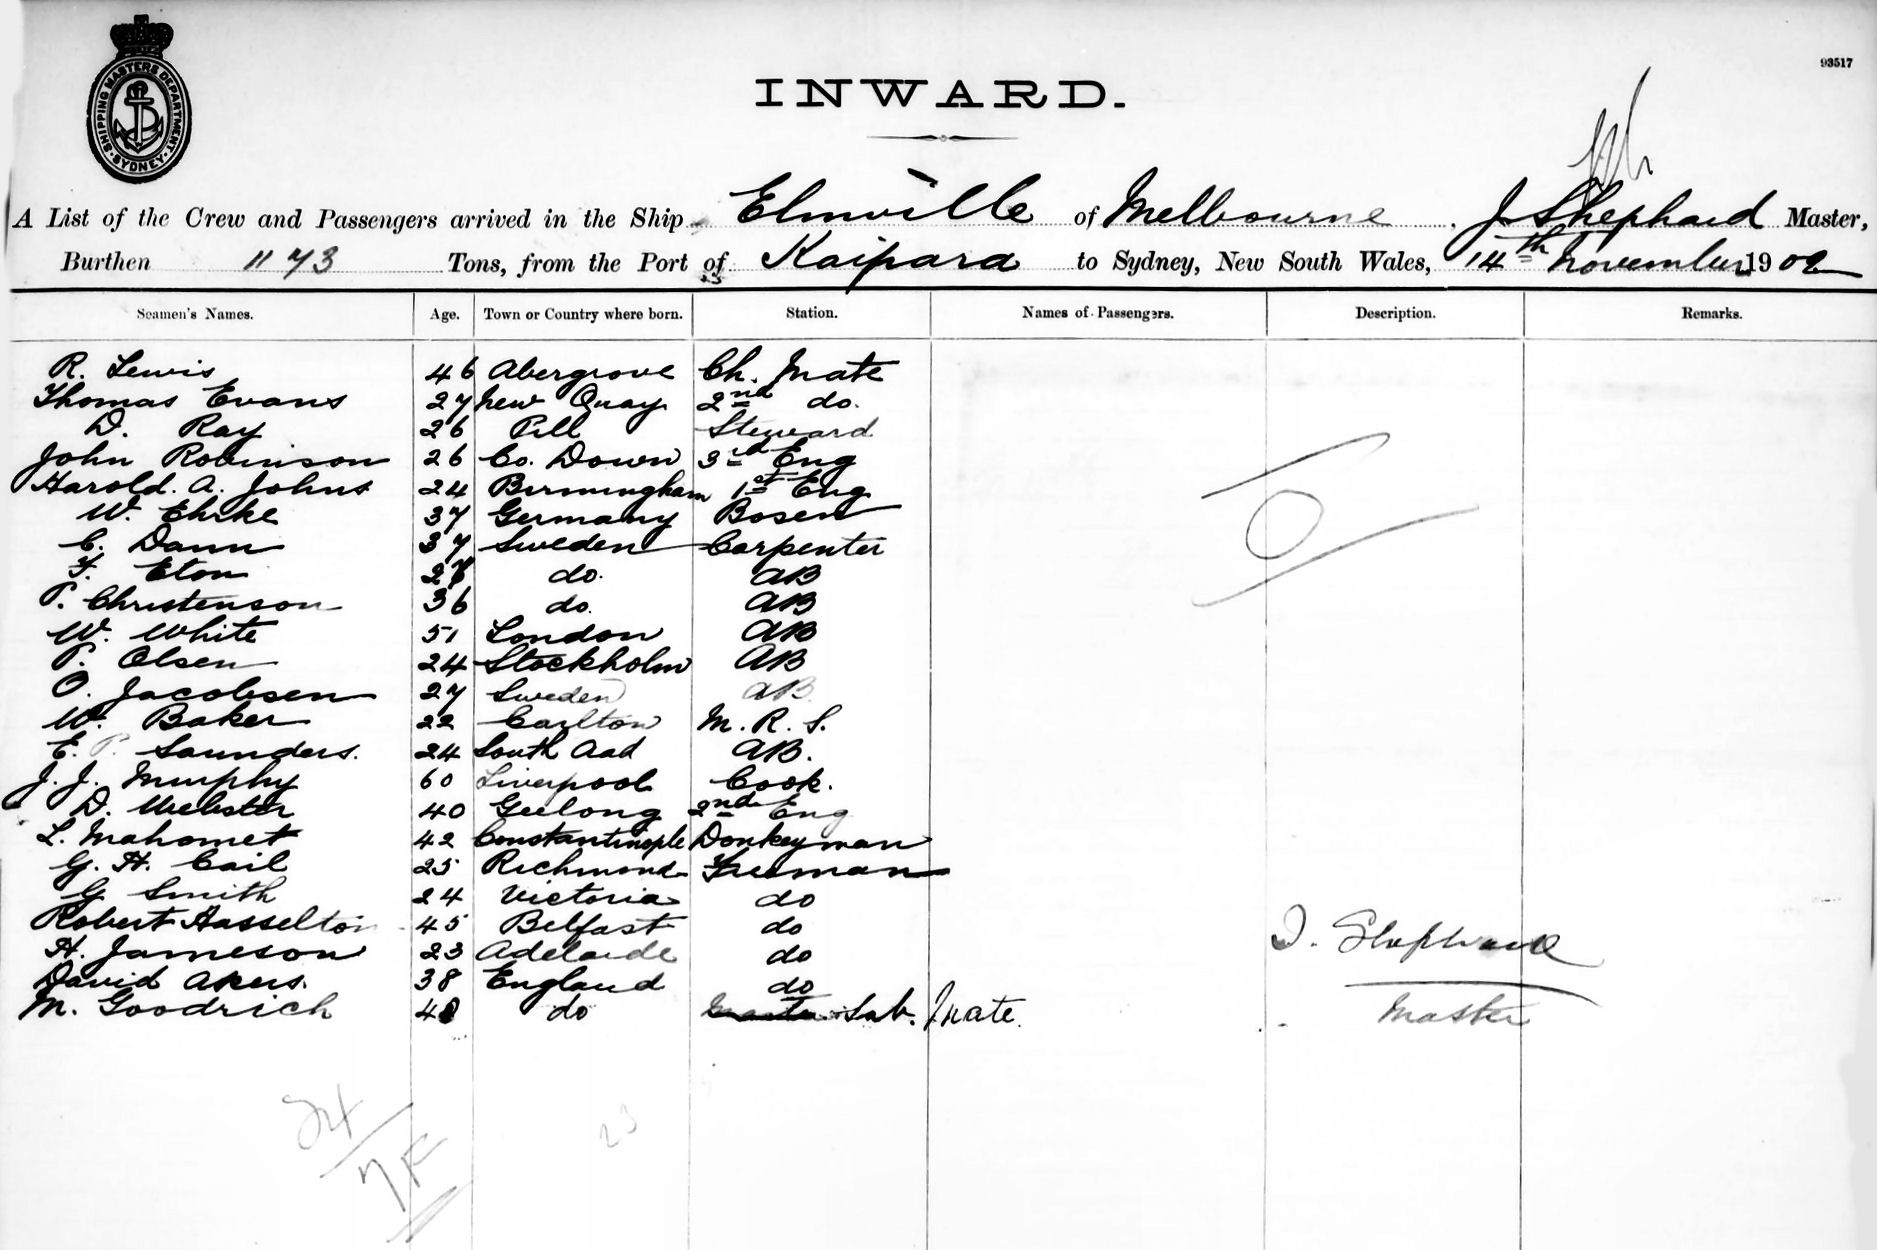 SHIPPING MASTERS DEPARTMENT
SYDNEY
93517
INWARD.
A List of the Crew and Passengers arrived in the Ship Elmville of Melbourne, J Shephard Master,
Burthen 1173 Tons, from the Port of Kaipara to Sydney, New South Wales, 14th November 1902
Seamen's Names. Age. Town or Country where born. Station. Names of Passengers. Description. Remarks.
R. Lewis 46 Abergrove Ch. Mate
Thomas Evans 27 New Quay 2nd do.
D. Ray 26 Pill Steward
John Robinson 26 Co. Down 3rd Eng
Harold. A. Johns 24 Birmingham 1st Eng
W. Ehrke 37 Germany Bosen
C. Dann 37 Sweden Carpenter
F. Eton do. AB
P. Christenson 36 do. AB
W. White 51 London AB
P. Olsen 24 Stockholm AB
O. Jacobsen 27 Sweden AB
W. Baker 22 Carlton M. R. S.
E. P. Saunders. 24 South Aad AB.
J. J. Murphy 60 Liverpool Cook.
D. Webster 40 Geelong 2nd Eng
L. Mahomet 42 Constantinople Donkeyman
G. H. Cail 25 Richmond Fireman
G Smith 24 Victoria do
Robert Hasselton 45 Belfast do
H. Jameson 23 Adelaide do
J. Shephard
David Akers. 38 England do
M. Goodrich do Sub. Mate.
Master
24
7F
23